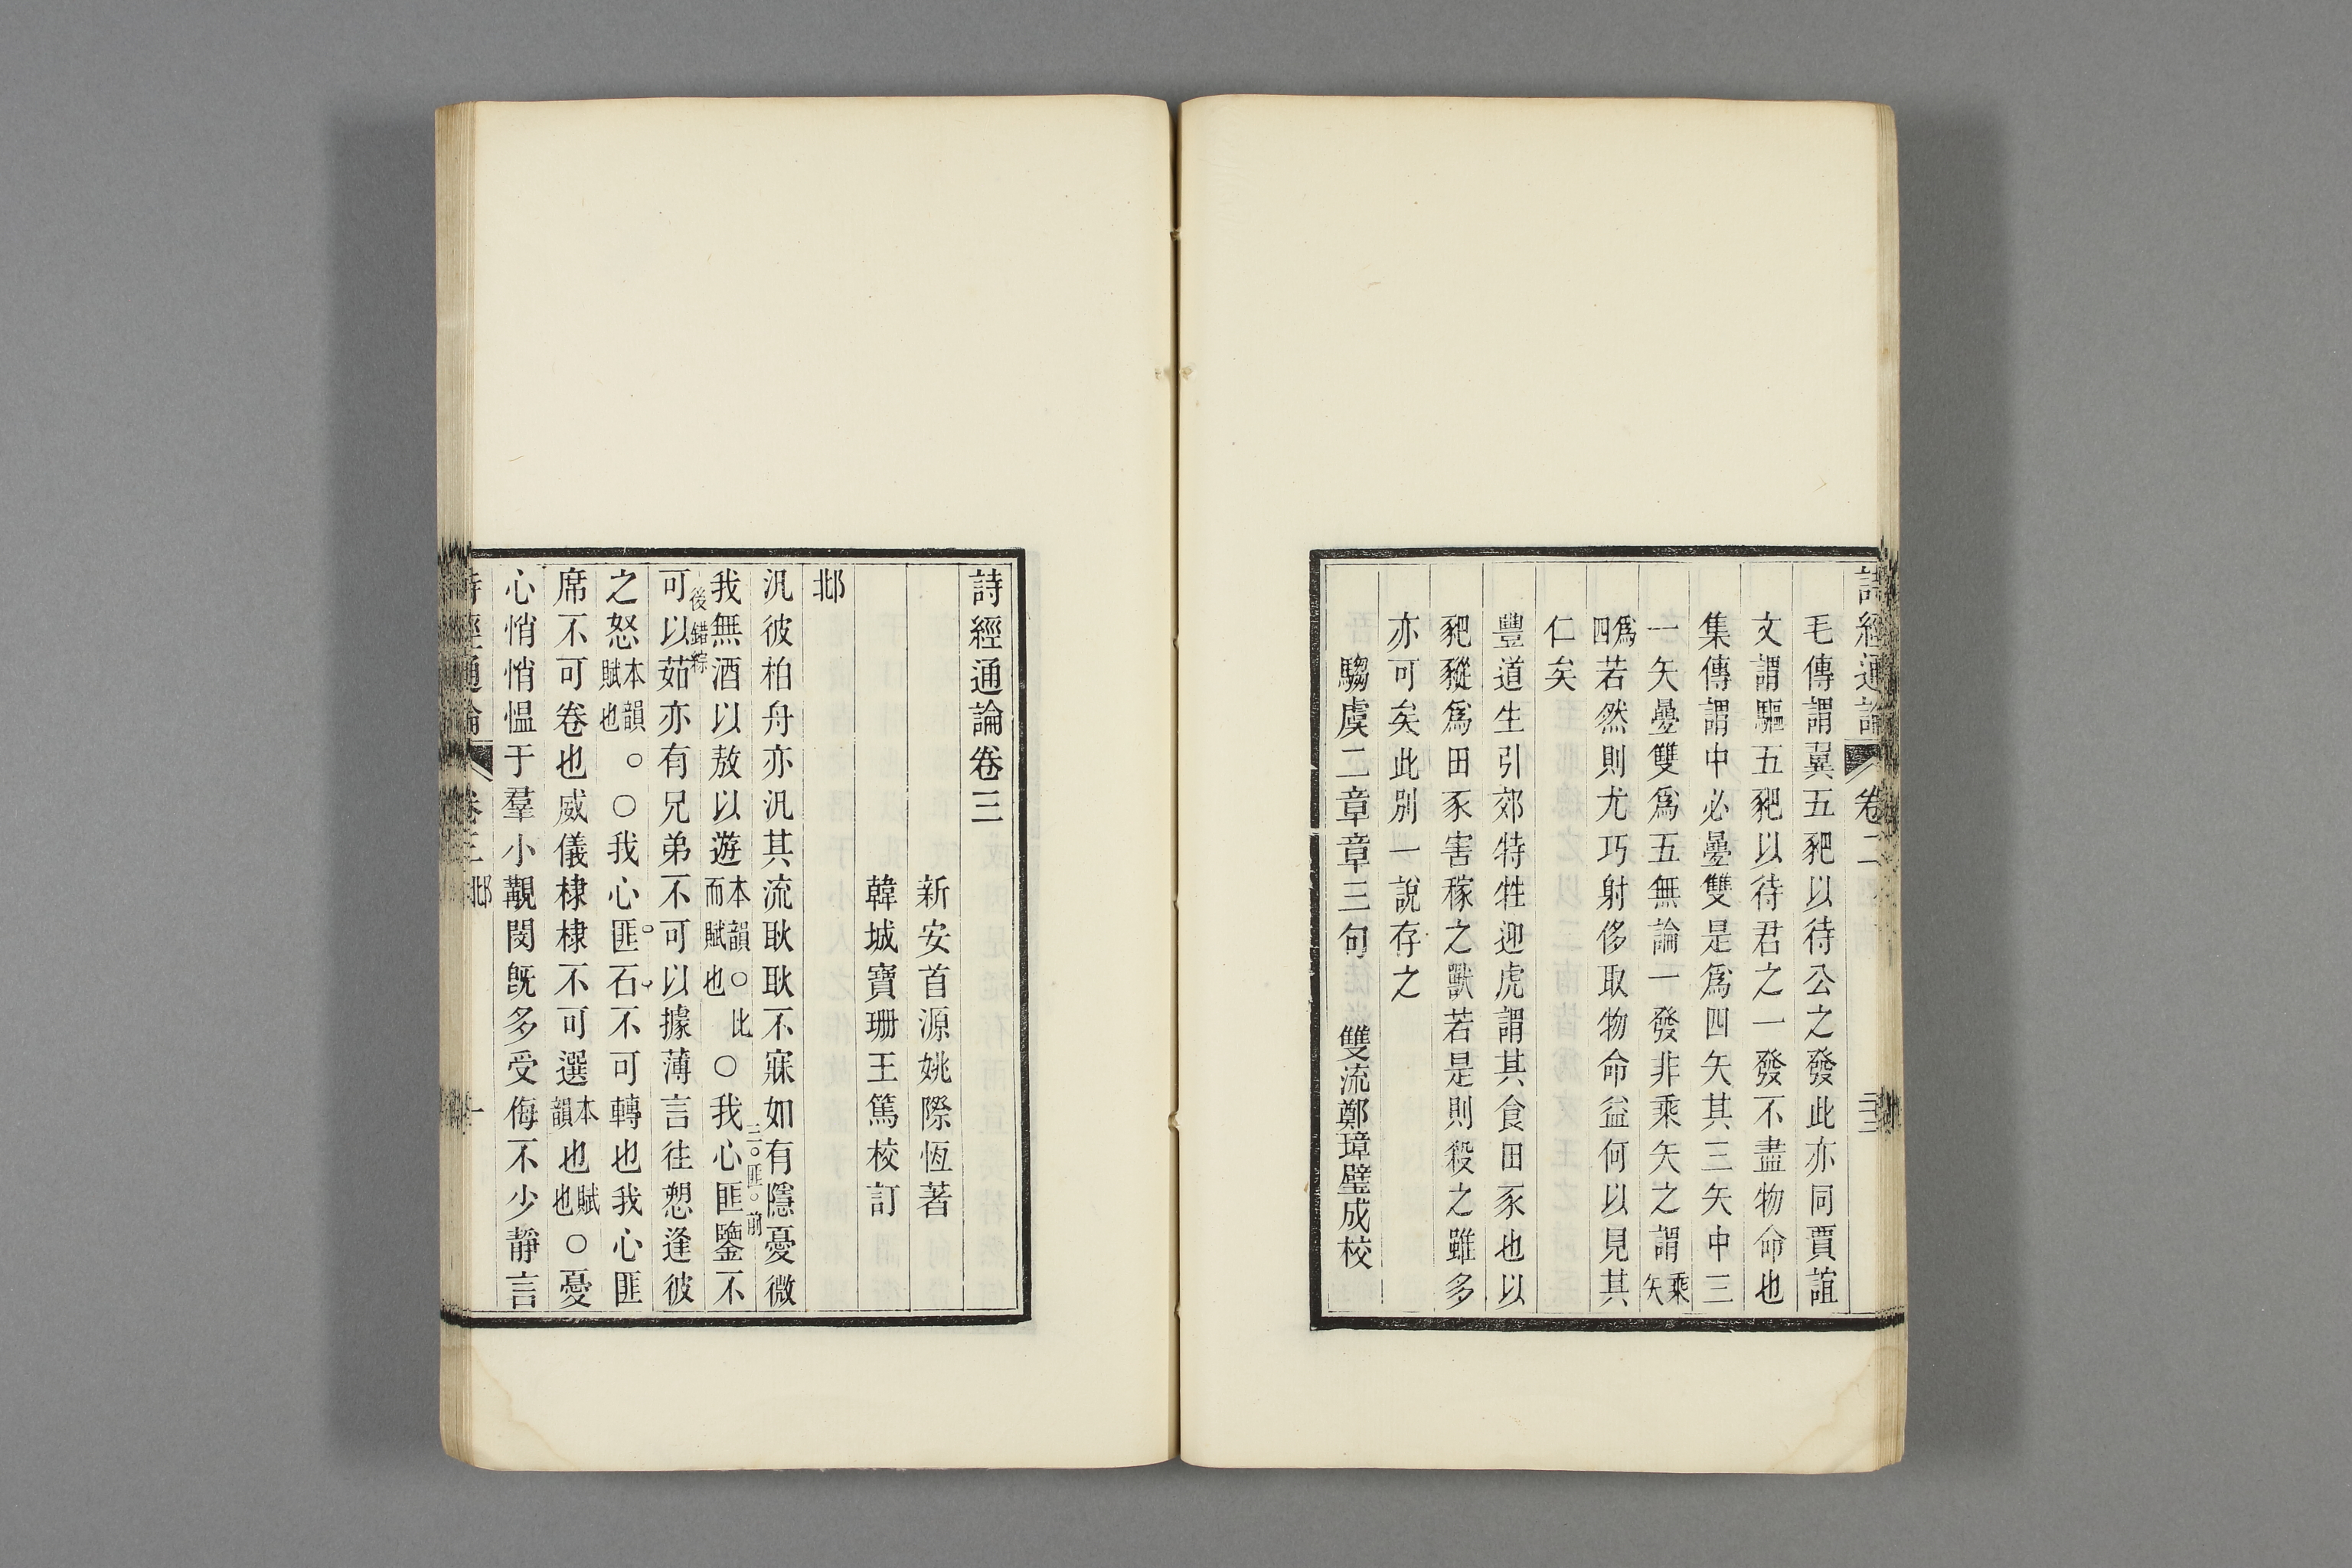 詩經通論 卷二
毛傳謂翼五豝以待公之發此亦同賈誼
文謂驅五豝以待君之一發不盡物命也
集傳謂中必疊雙是爲四矢其三矢中三
一矢疊雙爲五無論一發非乘矢之謂乘矢
爲四若然則尤巧射侈取物命益何以見其
仁矣
豐道生引郊特牲迎虎謂其食田豕也以
豝豵爲田豕害稼之獸若是則殺之雖多
亦可矣此別一說存之
騶虞二章章三句 雙流鄭璋璧成校
詩經通論卷三
新安首源姚際恆著
韓城寶珊王篤校訂
邶
汎彼柏舟亦汎其流耿耿不寐如有隱憂微
三匪前
我無酒以敖以遊本韻○比而賦也○我心匪鑒不
後錯綜
可以茹亦有兄弟不可以據薄言往愬逢彼
之怒本韻○賦也○我心匪石不可轉也我心匪
席不可卷也威儀棣棣不可選本韻也賦也○憂
心悄悄慍于羣小覯閔旣多受侮不少靜言
詩經通論 卷三 邶 一